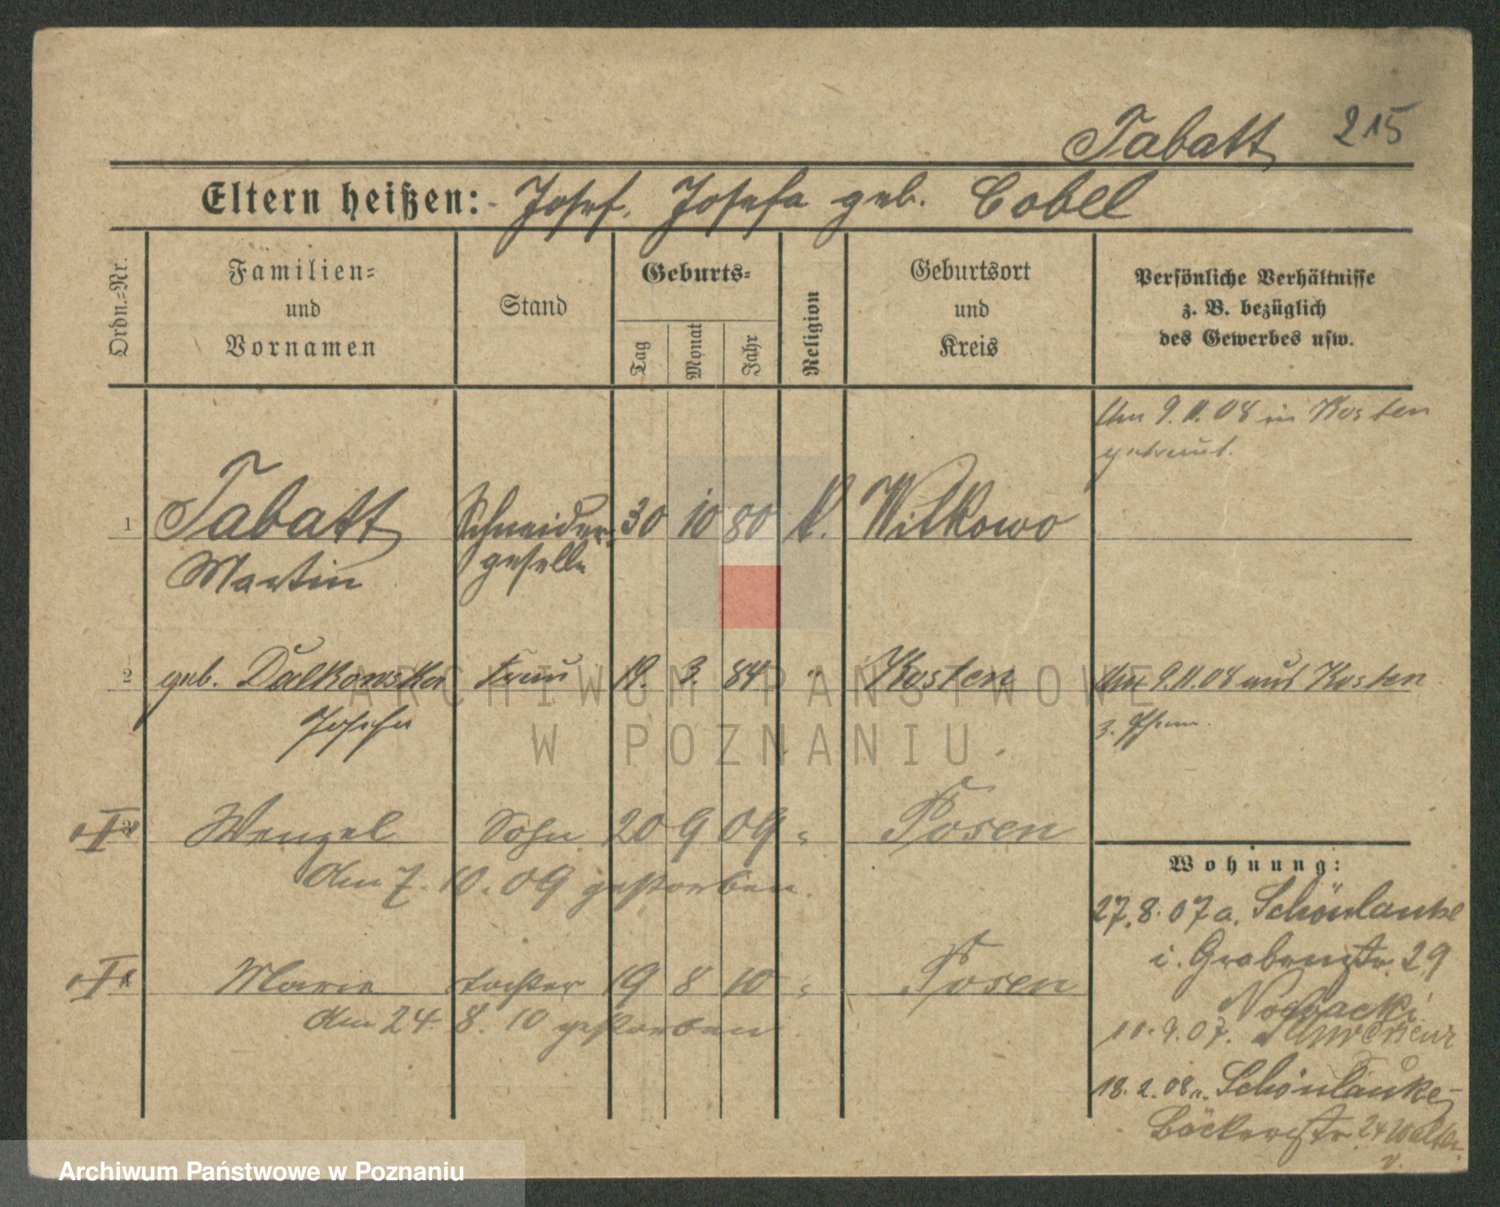 Tabatt 215
Eltern heißen: Josef, Josefa geb. Cobel
Ordn.-Nr.
Familien-
und
Vornamen
Stand
Geburts-
Tag
Monat
Jahr
Religion
Geburtsort
und
Kreis
Persönliche Verhältnisse
z. B. bezüglich
des Gewerbes usw.
Am 9.11.08 in Kosten
getraut.
1 Tabatt Schneider- 30 10 80 K. Wilkowo
Martin geselle
2 geb. Dalkowska Frau 19. 3. 84 " Kosten Am 9.11.08 aus Kosten
Josefa z. Ehem.
3 Wenzel Sohn 20 9 09 " Posen
am 7. 10. 09 gestorben.
Wohnung:
27.8.07 a. Schönlanke
i. Grabenstr. 29
4 Marie Tochter 19 8 10 " Posen
am 24. 8. 10 gestorben
Nowacki
11.9.07. Schwersenz
18.2.08 Schönlanke
Bäckerstr. 24
ARCHIWUM PAŃSTWOWE
W POZNANIU
Archiwum Państwowe w Poznaniu